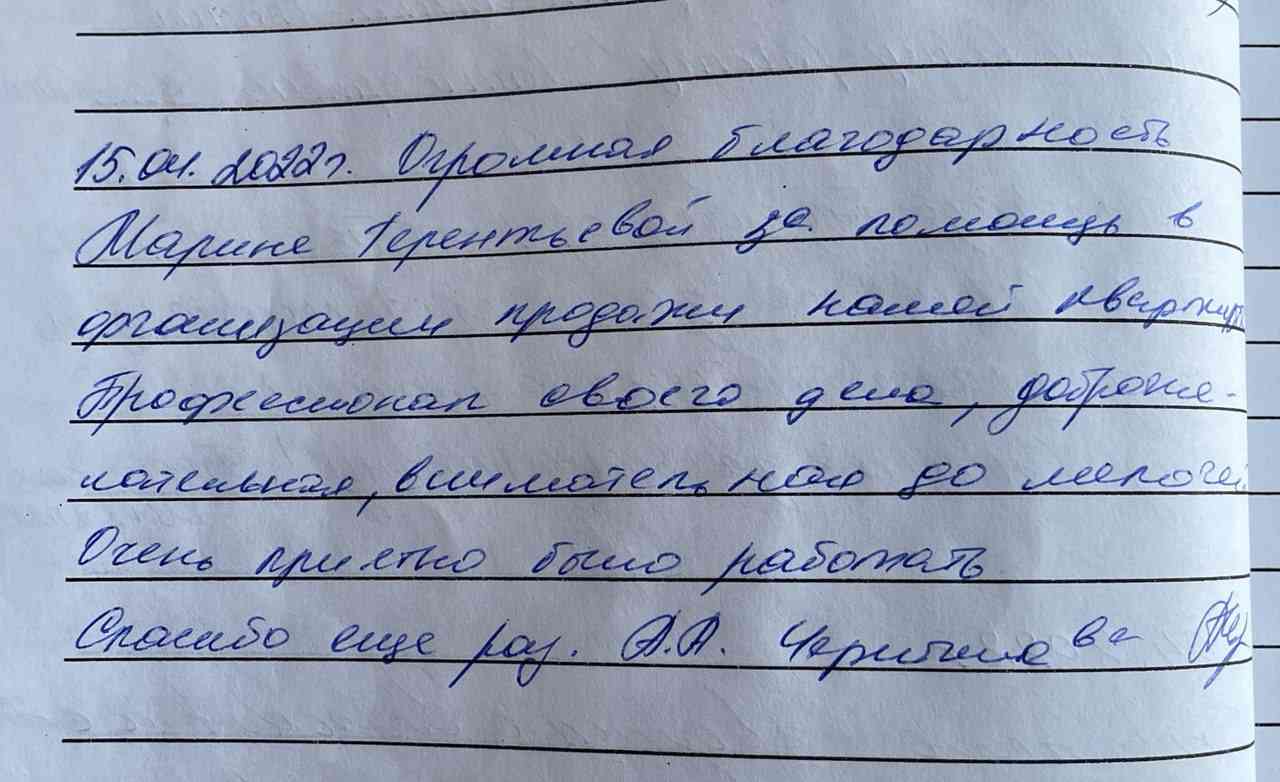 15.04.2022г. Огромная благодарность
Марине Терентьевой за помощь в
организации продажи нашей квартиры
Профессионал своего дела, доброже-
лательная, внимательная до мелочей
Очень приятно было работать
Спасибо еще раз. А.А.